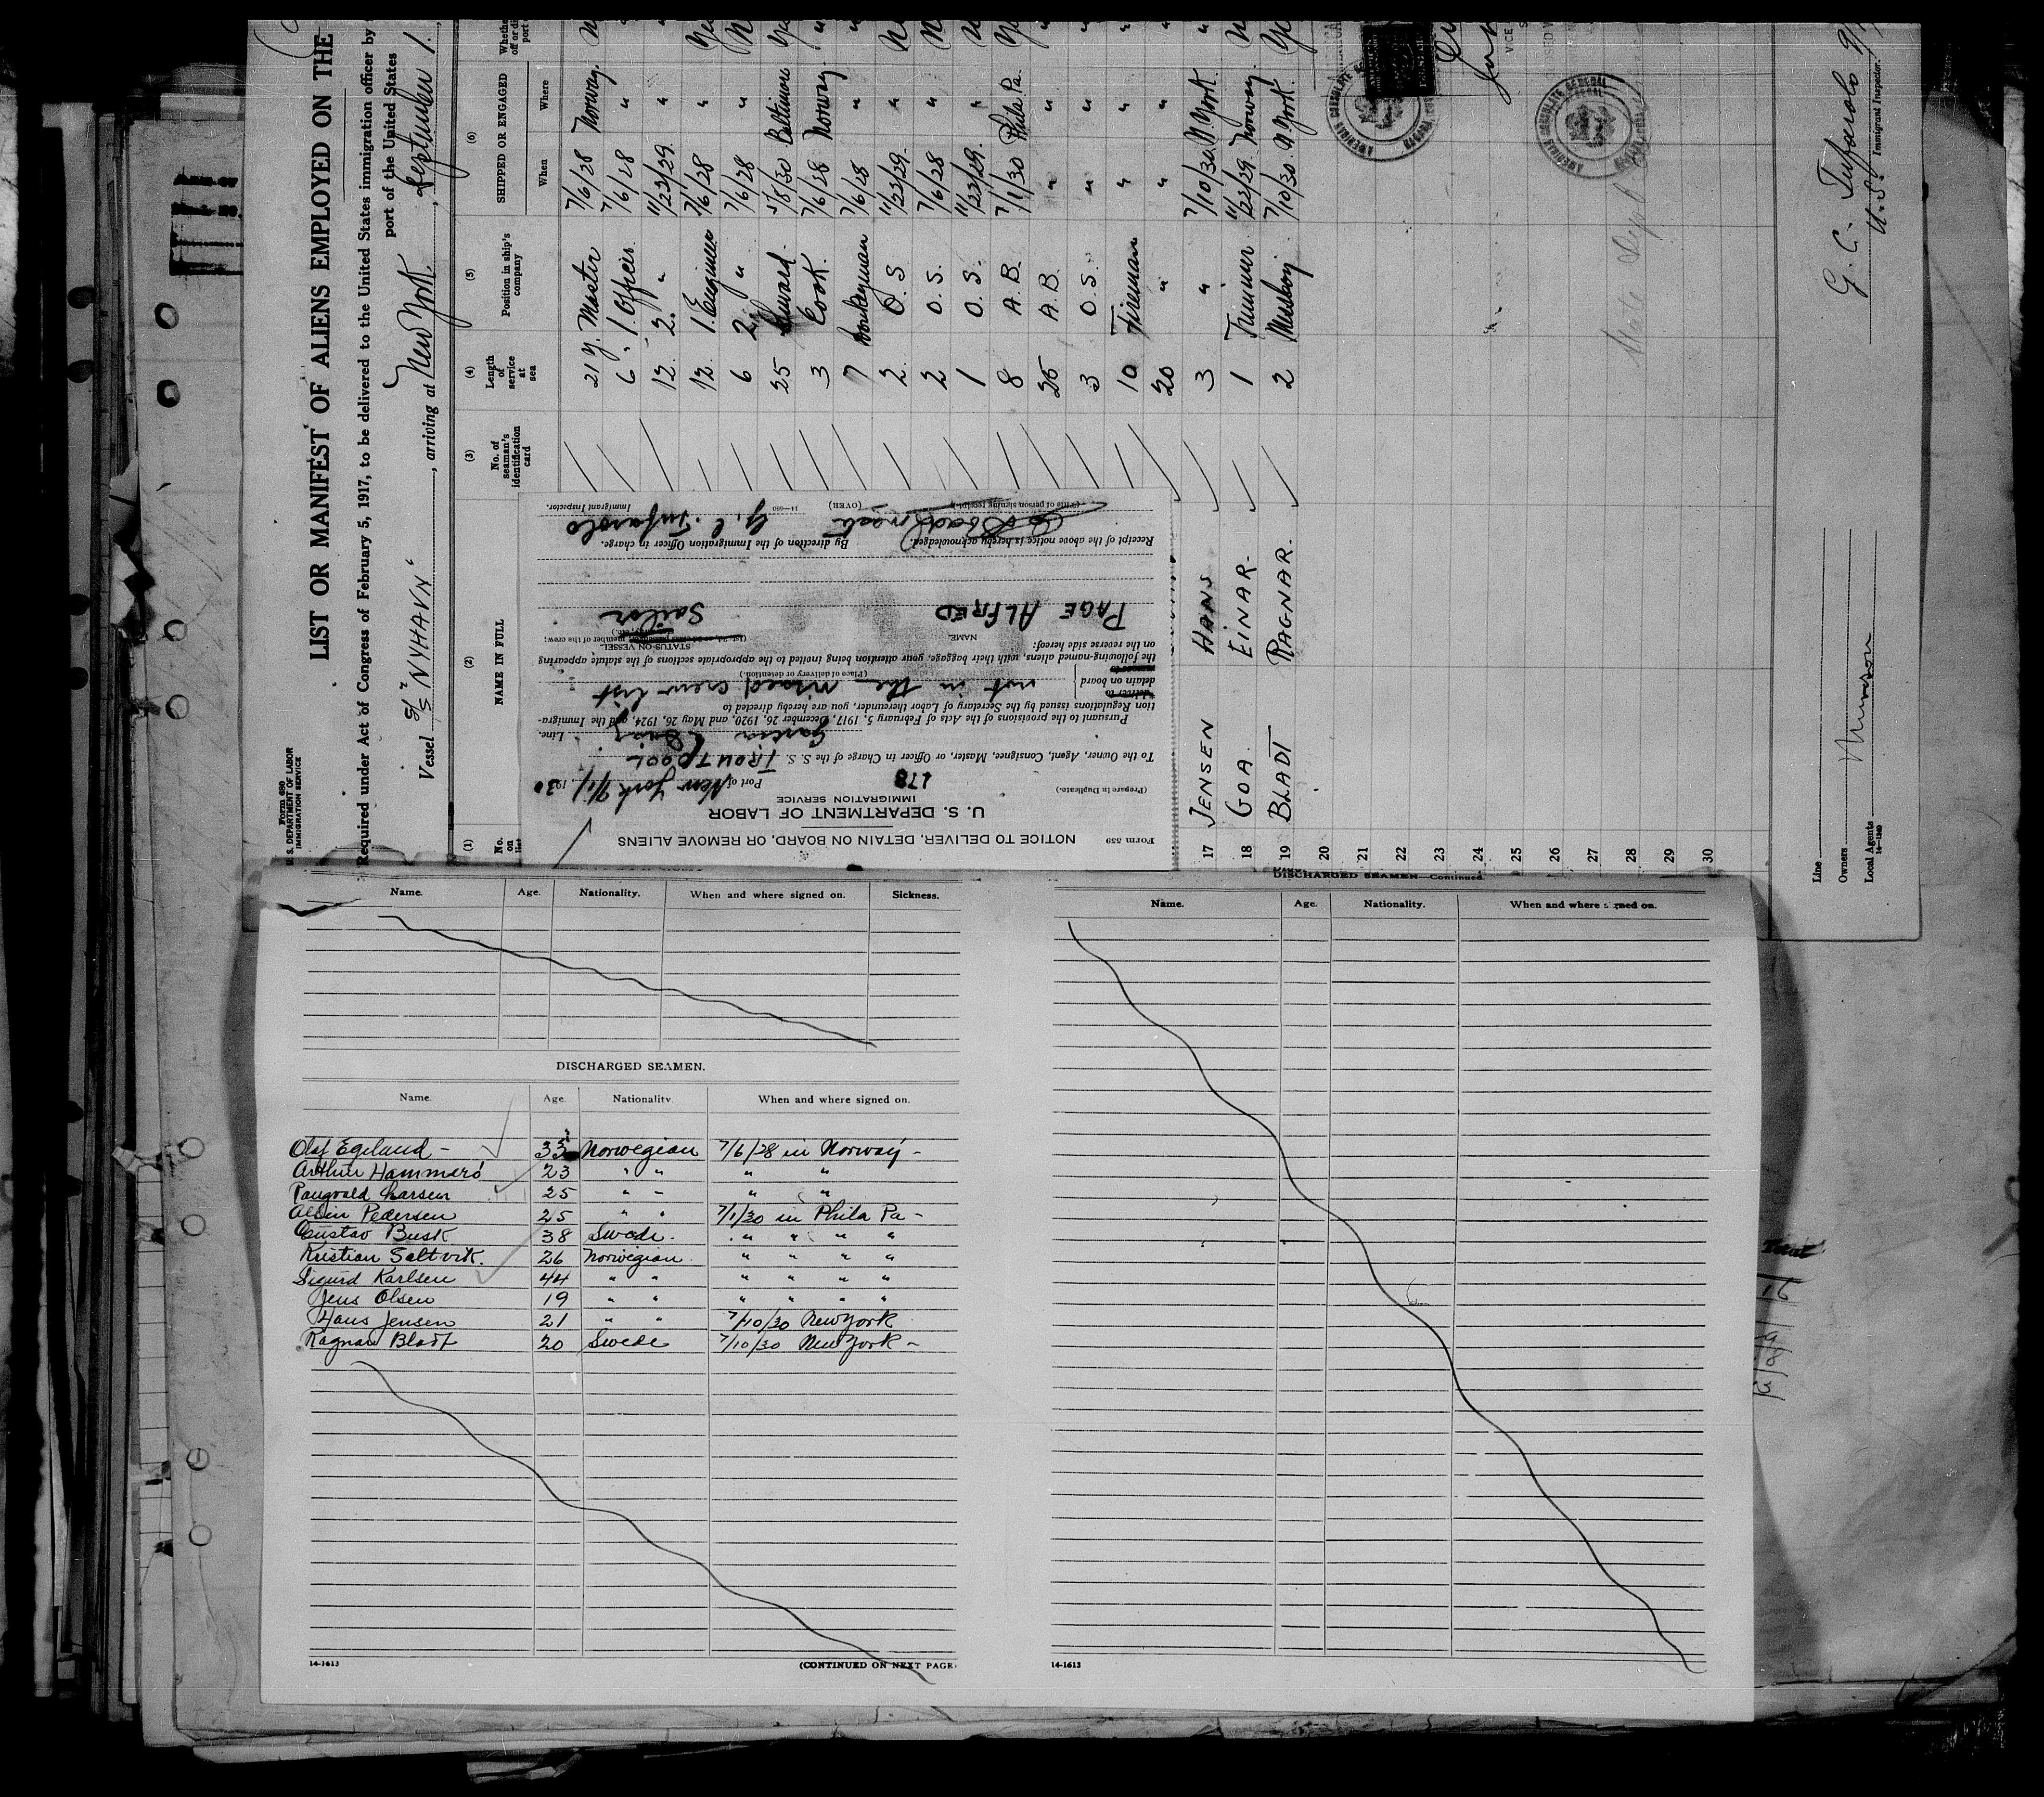 Form 680
U. S. DEPARTMENT OF LABOR
IMMIGRATION SERVICE
LIST OR MANIFEST OF ALIENS EMPLOYED ON THE
Required under Act of Congress of February 5, 1917, to be delivered to the United States immigration officer by
port of the United States
Vessel S/S "NYHAVN", arriving at New York, September 1.
(1) (2) (3) (4) (5) (6)
No. on list NAME IN FULL No. of seaman's identification card Length of service at sea Position in ship's company SHIPPED OR ENGAGED
When Where
21 y. Master 7/6/28 Norway.
6 " 1. Officer 7/6/28 "
12 2. " 11/22/29. "
12 1. Engineer 7/6/28 "
6 2 " 7/6/28 "
25 Steward 5/8/30 Baltimore
3 Cook. 7/6/28 Norway.
7 Donkeyman 7/6/28 "
2 O. S 11/22/29. "
2 O. S. 7/6/28 "
1 O. S. 11/22/29. "
8 A. B. 7/1/30 Phila Pa.
25 A. B. " "
3 O. S. " "
10 Fireman " "
20 " " "
17 JENSEN HANS 3 " 7/10/30. N. York. "
18 GOA EINAR 1 Trimmer 11/22/29. Norway.
19 BLADT RAGNAR. 2 Messboy. 7/10/30. N York.
20
21
22
23
24
25
26
27
28
29
30
Line
Owners Munson
Local Agents
14-1240
G. C. Tufarolo
U.S. Immigrant Inspector.
AMERICAN CONSULATE GENERAL
Form 559
NOTICE TO DELIVER, DETAIN ON BOARD, OR REMOVE ALIENS
U. S. DEPARTMENT OF LABOR
IMMIGRATION SERVICE
(Prepare in Duplicate.)
178
Port of New York 9/1/, 1930
To the Owner, Agent, Consignee, Master, or Officer in Charge of the S. S. TROUTPOOL
Garcia & Diaz Line.
Pursuant to the provisions of the Acts of February 5, 1917, December 26, 1920, and May 26, 1924, and the Immigra-
tion Regulations issued by the Secretary of Labor thereunder, you are hereby directed to
deliver to
detain on board
remove
not in the visaed crew list
(Place of delivery or detention.)
the following-named aliens, with their baggage, your attention being invited to the appropriate sections of the statute appearing
on the reverse side hereof:
NAME. STATUS ON VESSEL
member of the crew;
PAGE ALFRED Sailor
Receipt of the above notice is hereby acknowledged. By direction of the Immigration Officer in charge.
G. C. Tufarolo
(Title of person signing receipt.) (OVER) 14—680 Immigrant Inspector.
Name. Age. Nationality. When and where signed on. Sickness.
DISCHARGED SEAMEN.
Name. Age. Nationality. When and where signed on.
Olaf Egeland - 33 Norwegian 7/6/28 in Norway -
Arthur Hammerö 23 " " " "
Raugvald Larsen 25 " " " "
Albin Pedersen 25 " " 7/1/30 in Phila Pa -
Gustav Busk 38 Swede. " " " "
Kristian Saltvik. 26 Norwegian " " " "
Sigurd Karlsen 44 " " " " " "
Jens Olsen 19 " " " " " "
Hans Jensen 21 " " 7/10/30 New York
Ragnar Bladt 20 Swede 7/10/30 New York -
14-1613
(CONTINUED ON NEXT PAGE)
DISCHARGED SEAMEN—Continued.
Name. Age. Nationality. When and where signed on.
14-1613